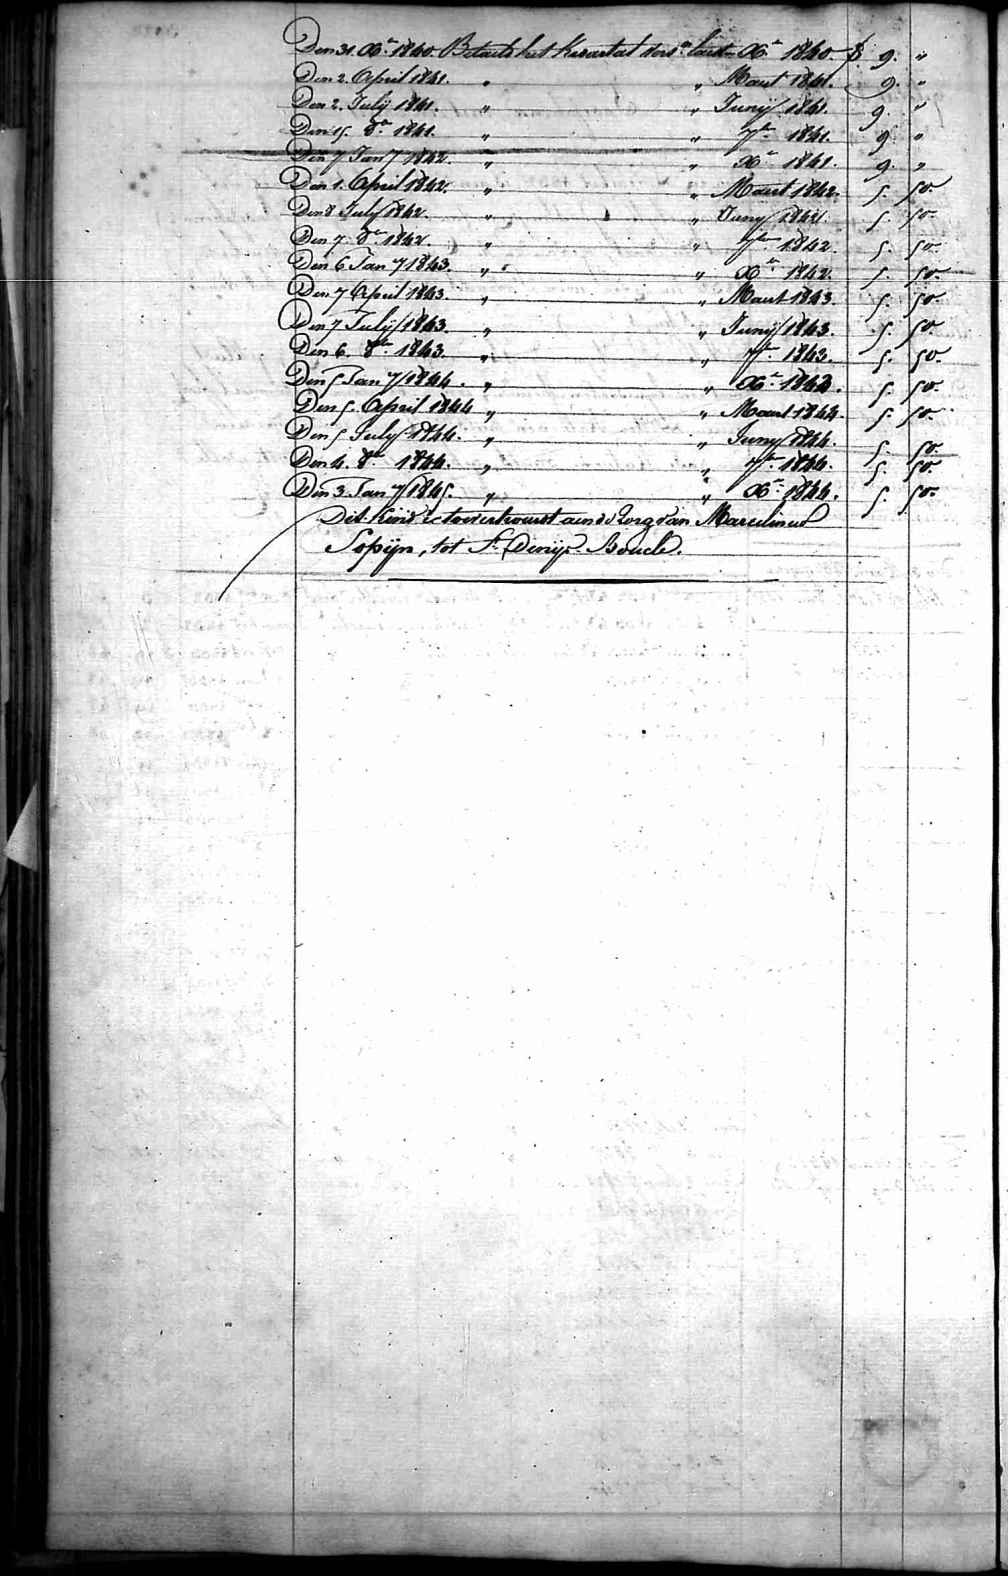 Den 31. Xr. 1840. Betaald het kwartal laest Xr. 1840. f 9. "
Den 2. April 1841. " " Maart 1841. 9. "
Den 2. July 1841. " " Junij 1841. 9. "
Den 15. 8r. 1841. " " 7r. 1841. 9. "
Den 7 Jan 7 1842. " " Xr. 1841. 9. "
Den 1. April 1842. " " Maart 1842. 5. 50.
Den 8 July 1842. " " Juny 1842. 5. 50.
Den 7. 8r. 1842. " " 7r. 1842 5. 50.
Den 6 Jan 7 1843. " " Xr. 1842. 5. 50
Den 7 April 1843. " " Maart 1843. 5. 50.
Den 7 July 1843. " " Junij 1843. 5. 50.
Den 6. 8r. 1843. " " 7r. 1843. 5. 50.
Den 5 Jan 7 1844. " " Xr. 1843. 5. 50
Den 5. April 1844 " " Maart 1844. 5. 50.
Den 5 July 1844. " " Juny 1844. 5. 50.
Den 4. 8r. 1844. " " 7r. 1844. 5. 50.
Den 3. Jan 7 1845. " " Xr. 1844. 5. 50.
Dit Kind is toevertrouwt aen de Zorg van Marcelinus
Sopijn, tot St. Denijs-Boucle.